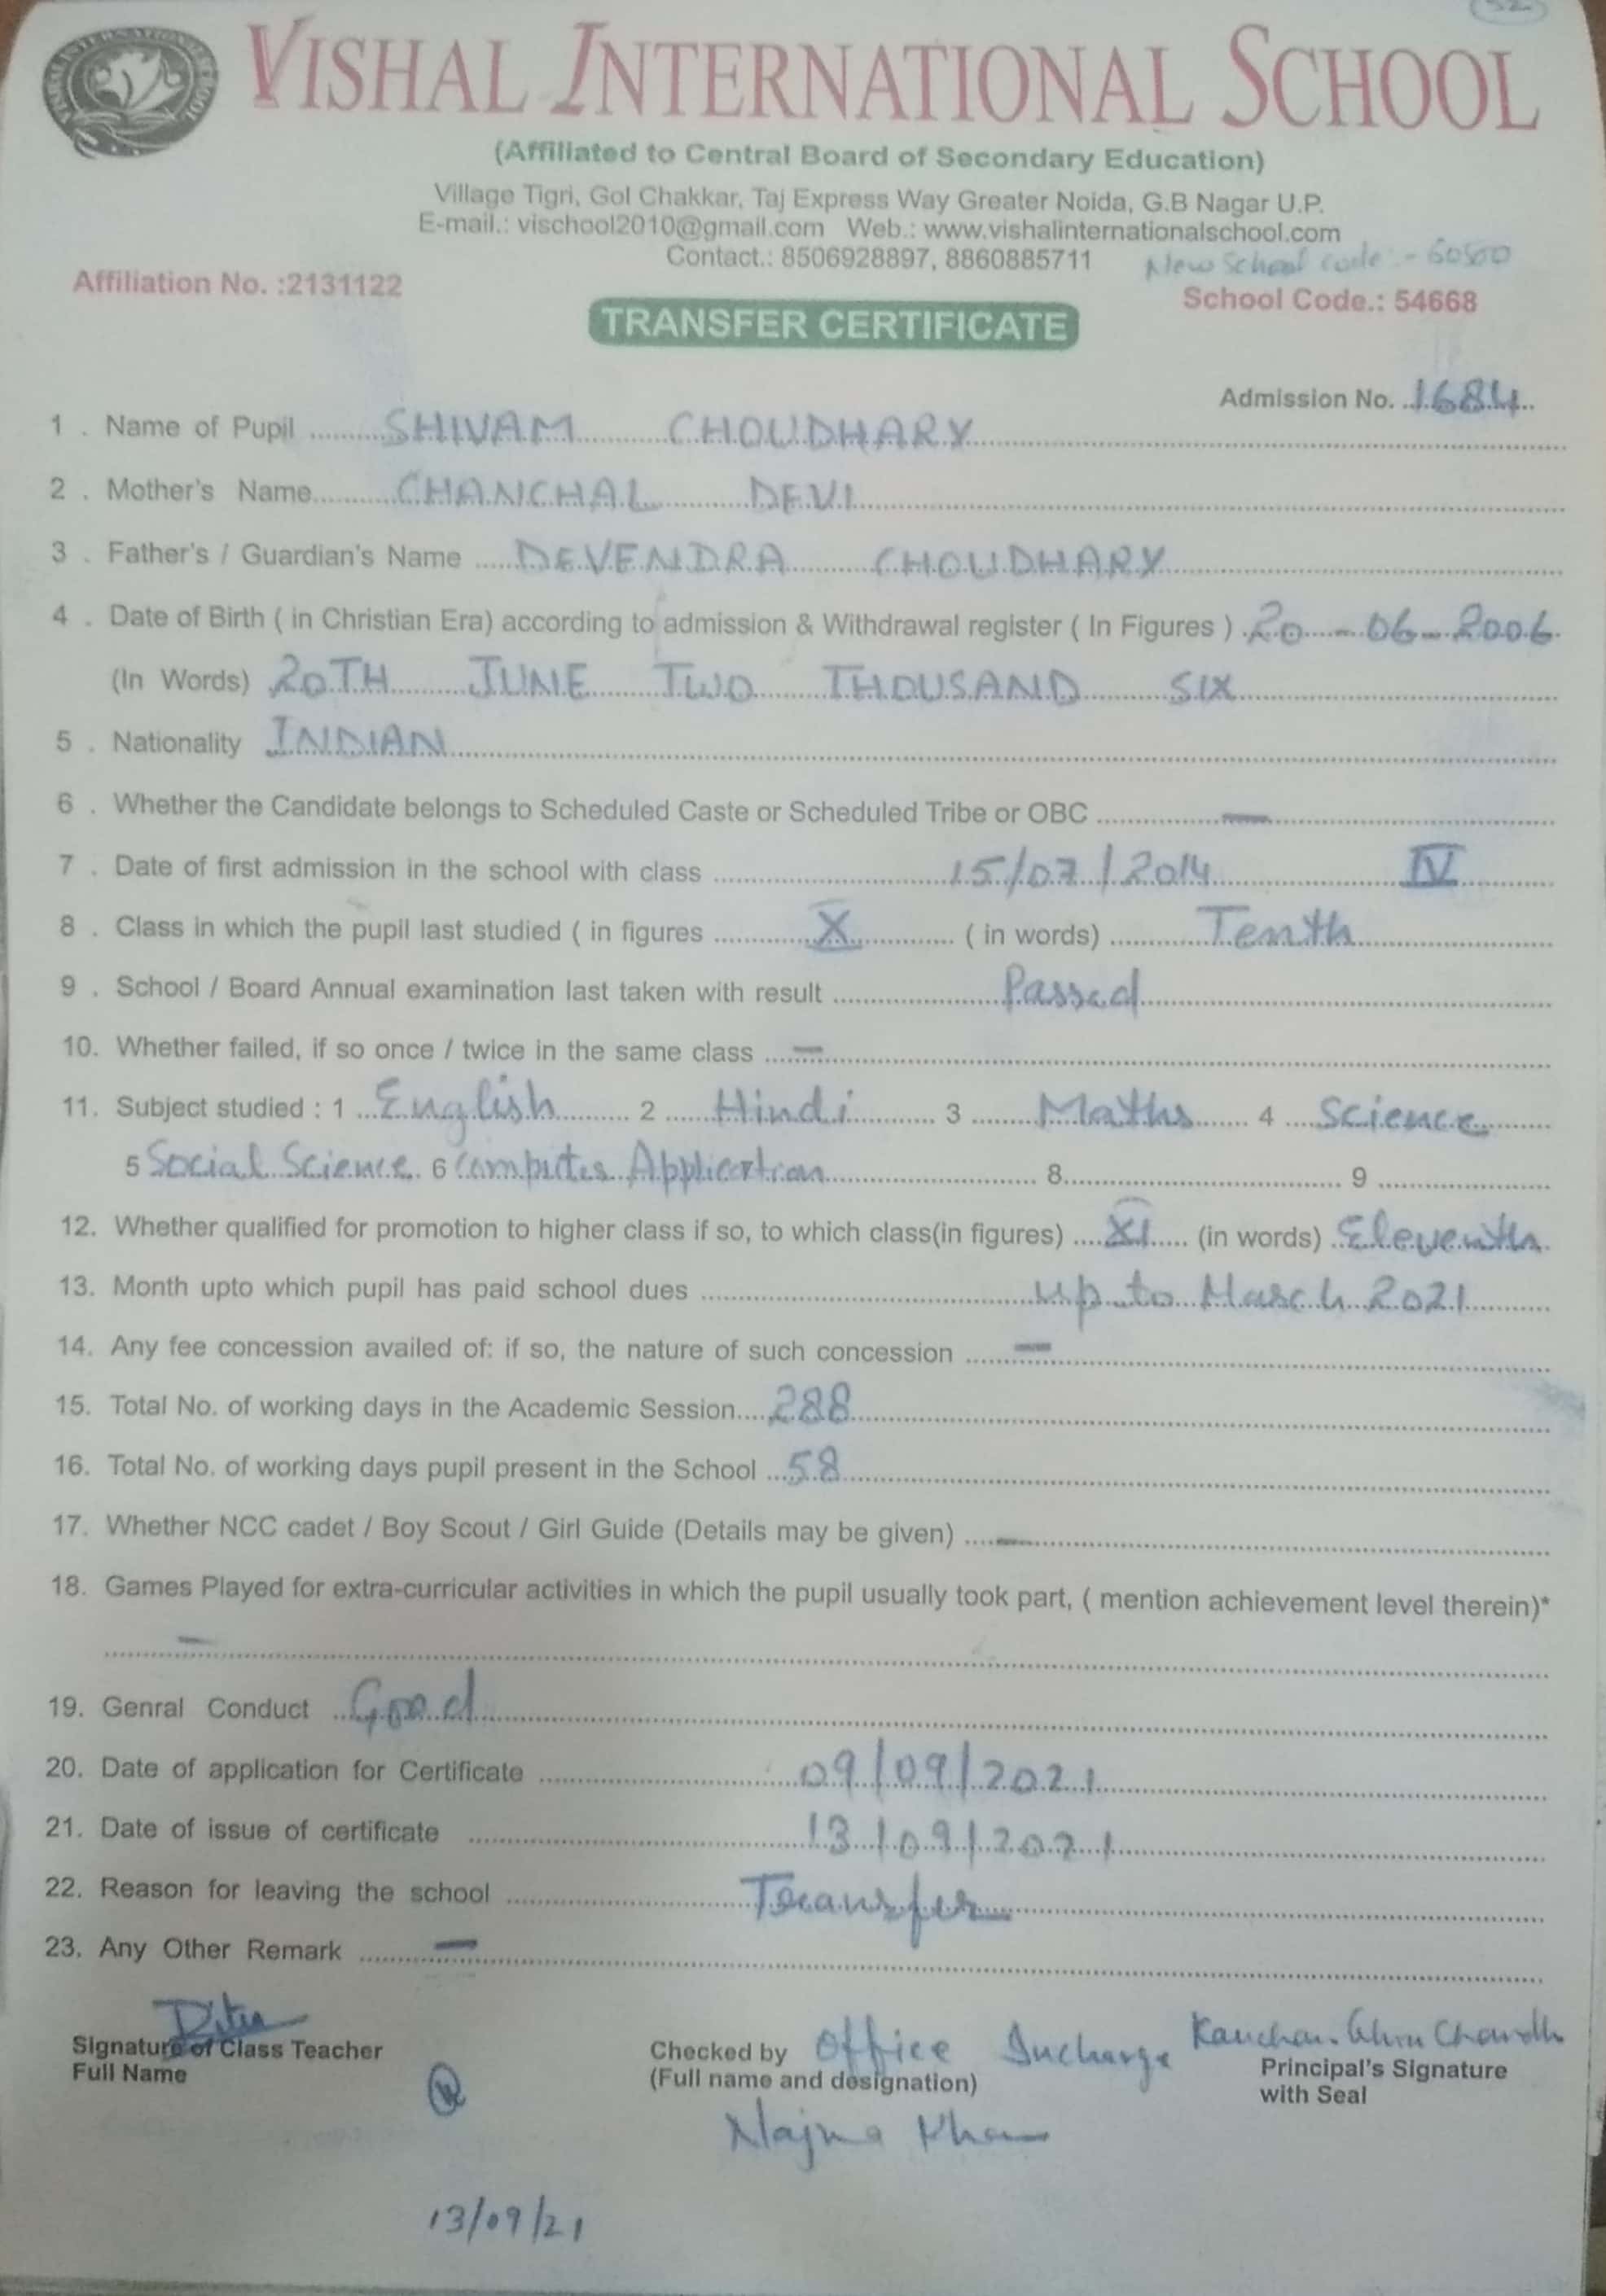 52
VISHAL INTERNATIONAL SCHOOL
(Affiliated to Central Board of Secondary Education)
Village Tigri, Gol Chakkar, Taj Express Way Greater Noida, G.B Nagar U.P.
E-mail.: vischool2010@gmail.com Web.: www.vishalinternationalschool.com
Contact.: 8506928897, 8860885711
New School code :- 60500
Affiliation No. :2131122
School Code.: 54668
TRANSFER CERTIFICATE
Admission No. 1684
1 . Name of Pupil SHIVAM CHOUDHARY
2 . Mother's Name CHANCHAL DEVI
3 . Father's / Guardian's Name DEVENDRA CHOUDHARY
4 . Date of Birth ( in Christian Era) according to admission & Withdrawal register ( In Figures ) 20 - 06 - 2006
(In Words) 20TH JUNE TWO THOUSAND SIX
5 . Nationality INDIAN
6 . Whether the Candidate belongs to Scheduled Caste or Scheduled Tribe or OBC —
7 . Date of first admission in the school with class 15/07/2014 IV
8 . Class in which the pupil last studied ( in figures X ( in words) Tenth
9 . School / Board Annual examination last taken with result Passed
10. Whether failed, if so once / twice in the same class —
11. Subject studied : 1 English 2 Hindi 3 Maths 4 Science
5 Social Science 6 Computer Application 8 9
12. Whether qualified for promotion to higher class if so, to which class(in figures) XI (in words) Eleventh
13. Month upto which pupil has paid school dues up to March 2021
14. Any fee concession availed of: if so, the nature of such concession —
15. Total No. of working days in the Academic Session 288
16. Total No. of working days pupil present in the School 58
17. Whether NCC cadet / Boy Scout / Girl Guide (Details may be given) —
18. Games Played for extra-curricular activities in which the pupil usually took part, ( mention achievement level therein)*
—
19. Genral Conduct Good
20. Date of application for Certificate 09/09/2021
21. Date of issue of certificate 13/09/2021
22. Reason for leaving the school Transfer
23. Any Other Remark —
Ritu
Signature of Class Teacher
Full Name
Checked by Office Incharge
(Full name and designation)
Najma Khan
Kanchan
Principal's Signature
with Seal
13/09/21